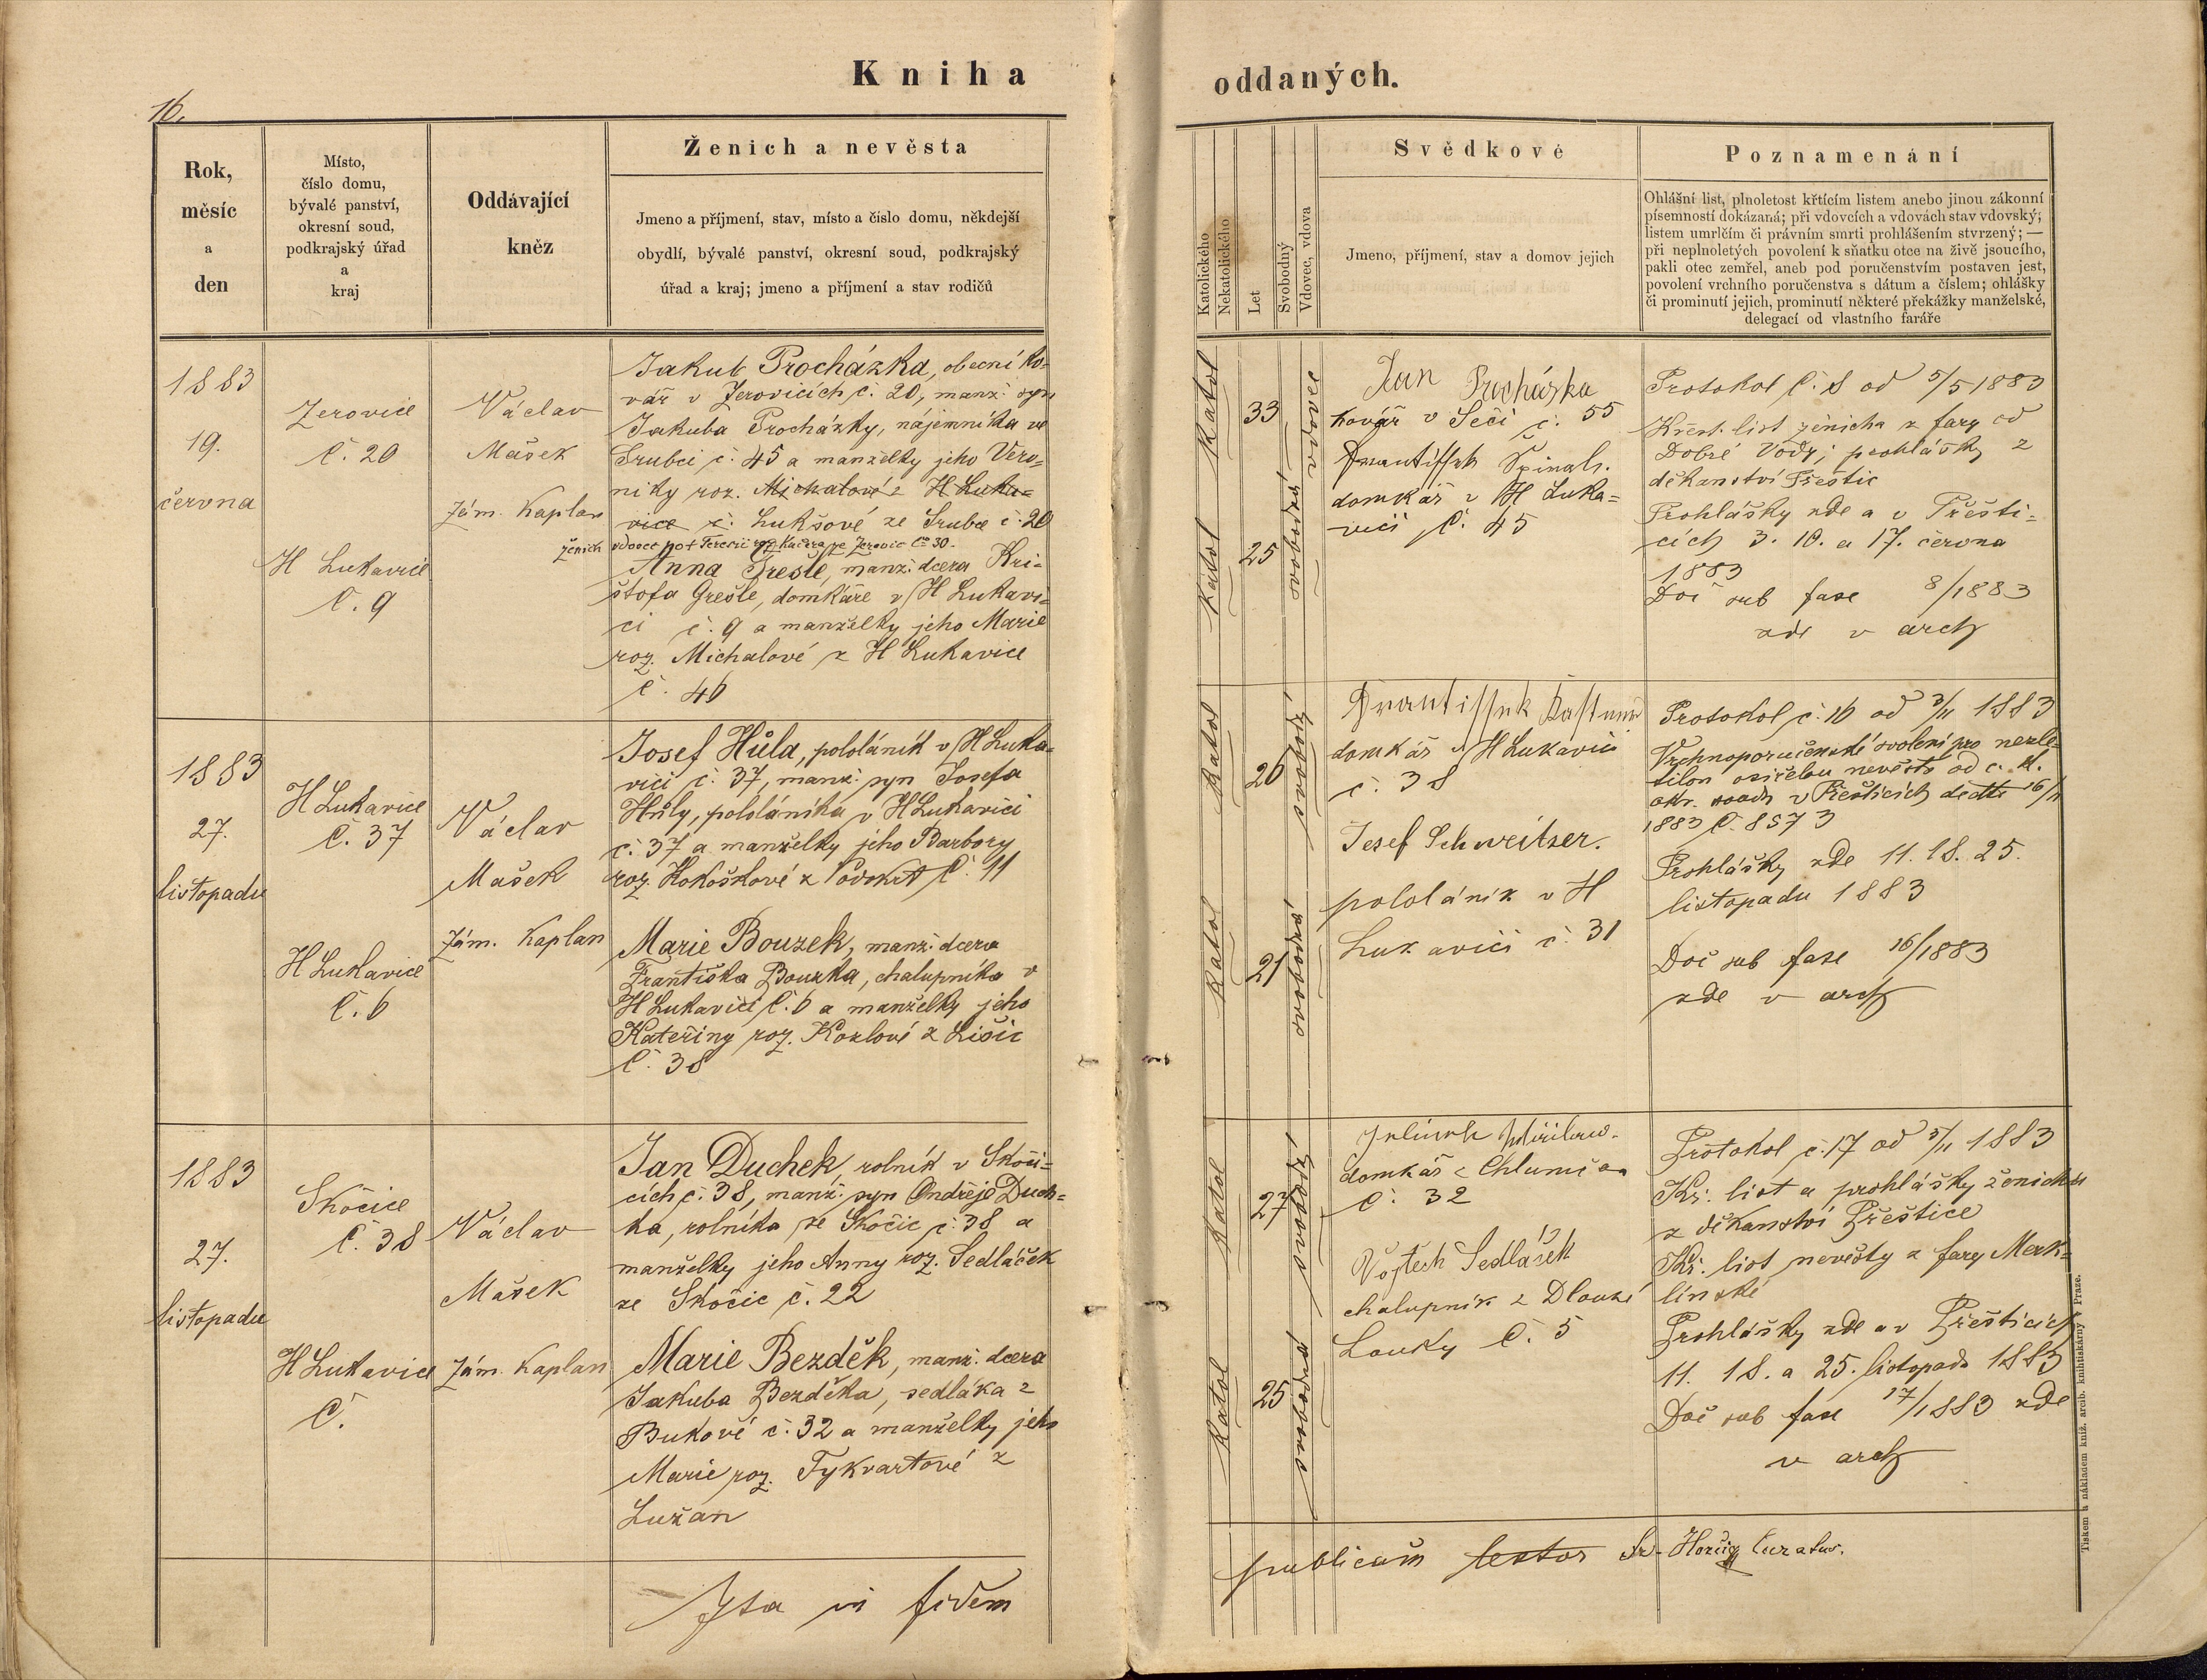 Kniha
oddaných.
16.
Rok,
měsíc
a
den
Místo,
číslo domu,
bývalé panství,
okresní soud,
podkrajský úřad
a
kraj
Oddávající
kněz
Ženich a nevěsta
Jmeno a příjmení, stav, místo a číslo domu, někdejší
obydlí, bývalé panství, okresní soud, podkrajský
úřad a kraj; jmeno a příjmení a stav rodičů
Katolického
Nekatolického
Let
Svobodný
Vdovec, vdova
Svědkové
Jmeno, příjmení, stav a domov jejich
Poznamenání
Ohlášní list, plnoletost křtícím listem anebo jinou zákonní
písemností dokázaná; při vdovcích a vdovách stav vdovský;
listem umrlčím či právním smrti prohlášením stvrzený; —
při neplnoletých povolení k sňatku otce na živě jsoucího,
pakli otec zemřel, aneb pod poručenstvím postaven jest,
povolení vrchního poručenstva s dátum a číslem; ohlášky
či prominutí jejich, prominutí některé překážky manželské,
delegací od vlastního faráře
1883
19.
června
Zerovice
č. 20
H Lukavice
č. 9
Václav
Mašek
zám. Kaplan
Jakub Procházka, obecní ko-
vář v Zerovicích č. 20, manž. syn
Jakuba Procházky, nájemníka ve
Srubci č. 45 a manželky jeho Vero-
niky roz. Michalové z H Luka=
vice č. Lukšové ze Srubce č. 20
ženich vdovec po + Terezii roz. Kučera ze Zerovic č. 30.
Anna Grešle, manž. dcera Kri-
štofa Grešle, domkáře v H Lukavi-
ci č. 9 a manželky jeho Marie
roz. Michalové z H Lukavice
č. 46
Katol
33
vdovec
Katol
25
svobodná
Jan Procházka
kovář v Seči č. 55
Frantissek Špinal.
domkář z H Luka=
vici č. 45
Protokol č. 8 od 5/5 1883
Křest. list ženicha z fary od
Dobré Vody; prohlášky z
děkanství Přeštic
Prohlášky zde a v Přešti=
cích 3. 10. a 17. června
1883
Doč sub fasc 8/1883
zde v arch
1883
27.
listopadu
H Lukavice
č. 37
H Lukavice
č. 6
Václav
Mašek
zám. Kaplan
Josef Hůla, pololáník v H Luka-
vici č. 37, manž. syn Josefa
Hůly, pololáníka v H Lukavici
č. 37 a manželky jeho Barbory
roz. Kokoškové z č. 11
Marie Bouzek, manž. dcera
Františka Bouzka, chalupníka v
H Lukavici č. 6 a manželky jeho
Kateřiny roz. Kozlové z Lišic
č. 38
Katol
26
svobodný
Katol
21
svobodná
Frantissek Kastner
domkář v H Lukavici
č. 38
Josef Schweitzer.
pololáník v H
Lukavici č. 31
Protokol č. 16 od 3/11 1883
Vrchnoporučenské svolení pro nezle-
tilou osiřelou nevěstu od c. k.
okr. soudu v Přešticích dedto 16/11
1883 č. 8573
Prohlášky zde 11. 18. 25.
listopadu 1883
Doč sub fasc 16/1883
zde v arch
1883
27.
listopadu
Skočice
č. 38
H Lukavice
č.
Václav
Mašek
zám. Kaplan
Jan Duchek, rolník v Skoči=
cích č. 38, manž. syn Ondřeje Duch=
ka, rolníka ze Skočic č. 38 a
manželky jeho Anny roz. Sedláček
ze Skočic č. 22
Marie Bezděk, manž. dcera
Jakuba Bezděka, sedláka z
Bukové č. 32 a manželky jeho
Marie roz. Tykvartové z
Lužan
Katol
27
svobodný
Katol
25
svobodná
domkář z Chlumčan
č. 32
Vojtech Sedlášek
chalupník z Dlouhé
Louky č. 5
Protokol č. 17 od 5/11 1883
Kř. list a prohlášky ženicha
z děkanství Přeštice
Kř. list nevěsty z fary Merk=
línské
Prohlášky zde a v Přešticích
11. 18. a 25. listopadu 1883
Doč sub fasc 17/1883 zde
v arch
Ita in fidem
publicam testor Curatus.
Tiskem a nákladem kníž. arcib. knihtiskárny v Praze.